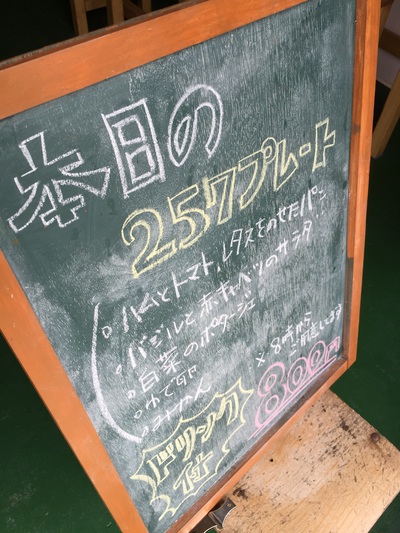 本日の
257プレート
。ハムとトマト、レタスをのせたパン
。バジルと赤キャベツのサラダ
。白菜のポタージュ
。ゆで卵
。みかん
※8時から
ご用意します
ドリンク
付
800円